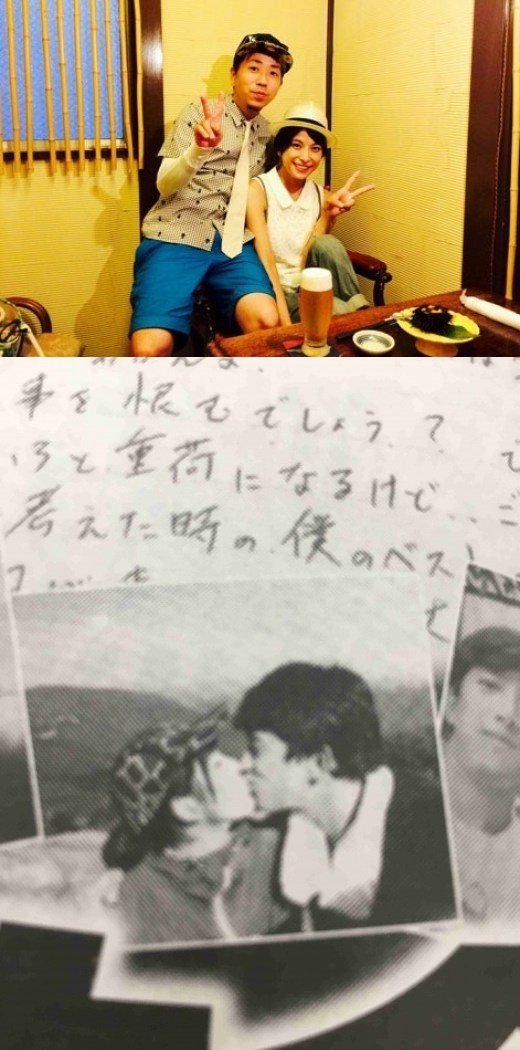 事を恨むでしょう?
ろと重荷になるけど..ご
考えた時の.僕のベス